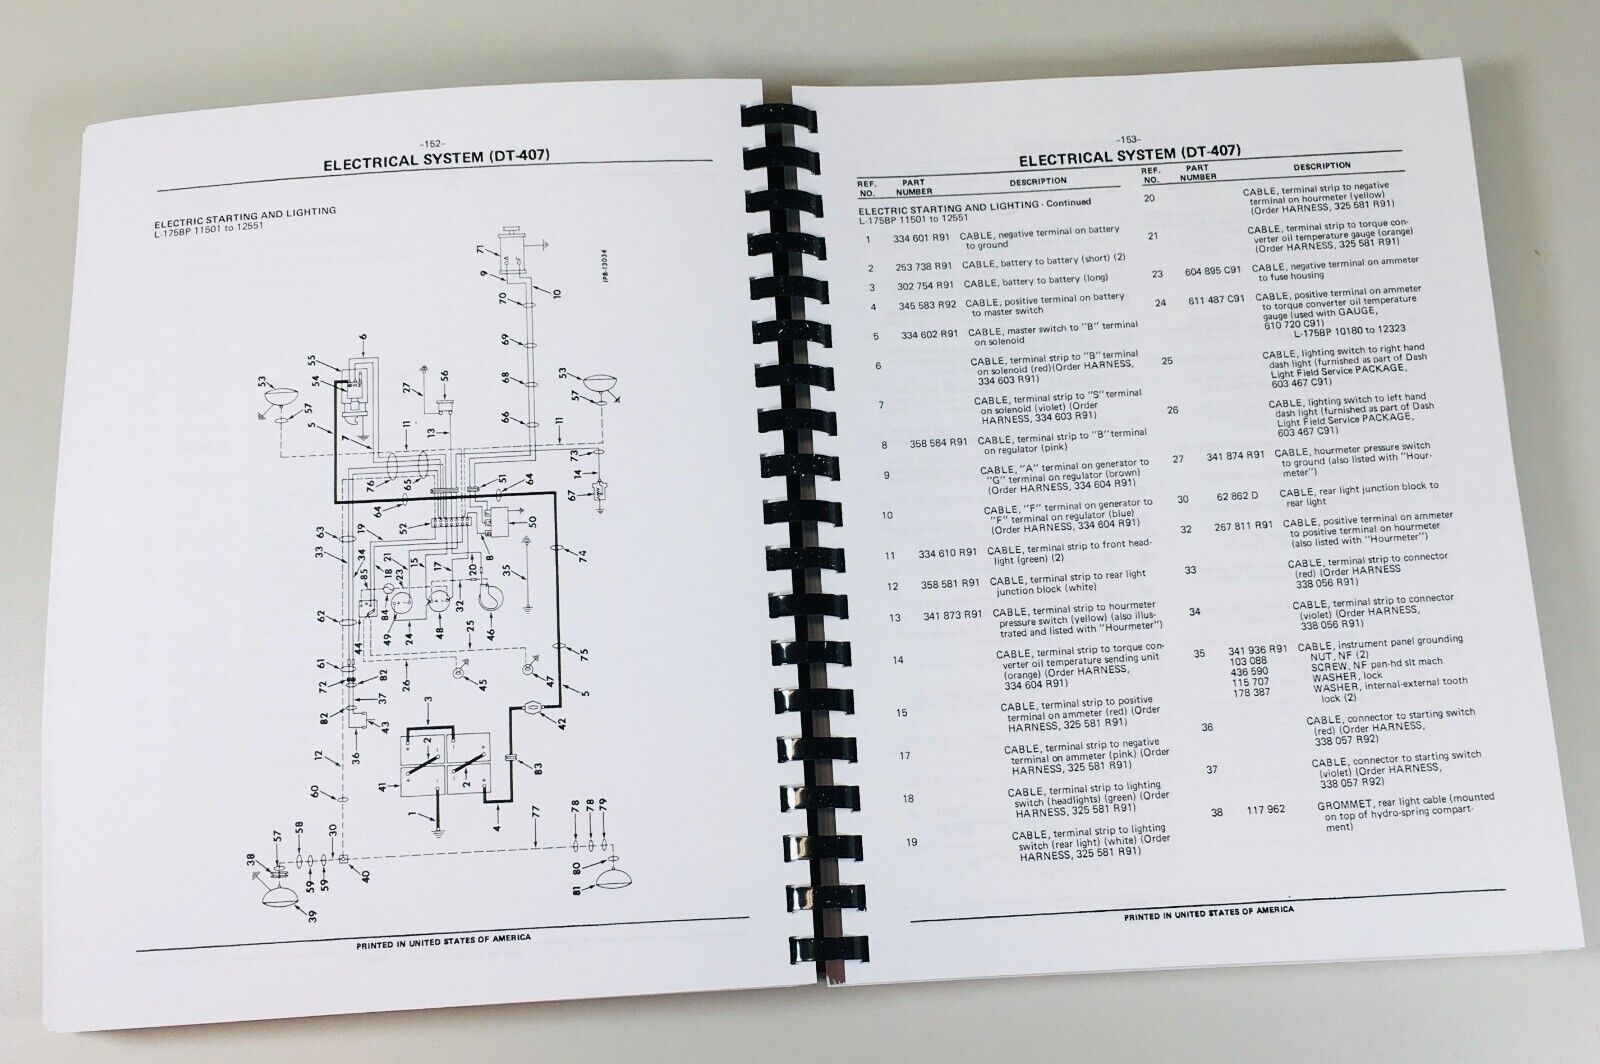 -152-
ELECTRICAL SYSTEM (DT-407)
ELECTRIC STARTING AND LIGHTING
L-175BP 11501 to 12551
71
9
10
70
IPB-13034
69
68
66
6
55
54
53
57
5
7
11
27
56
13
53
57
11
73
14
67
76
65
64
51
64
52
50
8
63
33
19
34
85
18
21
23
15
17
20
35
74
62
84
49
24
48
32
25
46
44
61
72
82
26
45
47
75
5
37
82
43
36
3
42
12
2
2
41
83
60
1
4
77
78
78
79
58
57
38
30
59
59
40
39
80
81
PRINTED IN UNITED STATES OF AMERICA
-153-
ELECTRICAL SYSTEM (DT-407)
REF. NO. PART NUMBER DESCRIPTION
ELECTRIC STARTING AND LIGHTING - Continued
L-175BP 11501 to 12551
1 334 601 R91 CABLE, negative terminal on battery
to ground
2 253 738 R91 CABLE, battery to battery (short) (2)
3 302 754 R91 CABLE, battery to battery (long)
4 345 583 R92 CABLE, positive terminal on battery
to master switch
5 334 602 R91 CABLE, master switch to "B" terminal
on solenoid
6 CABLE, terminal strip to "B" terminal
on solenoid (red)(Order HARNESS,
334 603 R91)
7 CABLE, terminal strip to "S" terminal
on solenoid (violet) (Order
HARNESS, 334 603 R91)
8 358 584 R91 CABLE, terminal strip to "B" terminal
on regulator (pink)
9 CABLE, "A" terminal on generator to
"G" terminal on regulator (brown)
(Order HARNESS, 334 604 R91)
10 CABLE, "F" terminal on generator to
"F" terminal on regulator (blue)
(Order HARNESS, 334 604 R91)
11 334 610 R91 CABLE, terminal strip to front head-
light (green) (2)
12 358 581 R91 CABLE, terminal strip to rear light
junction block (white)
13 341 873 R91 CABLE, terminal strip to hourmeter
pressure switch (yellow) (also illus-
trated and listed with "Hourmeter")
14 CABLE, terminal strip to torque con-
verter oil temperature sending unit
(orange) (Order HARNESS,
334 604 R91)
15 CABLE, terminal strip to positive
terminal on ammeter (red) (Order
HARNESS, 325 581 R91)
17 CABLE, terminal strip to negative
terminal on ammeter (pink) (Order
HARNESS, 325 581 R91)
18 CABLE, terminal strip to lighting
switch (headlights) (green) (Order
HARNESS, 325 581 R91)
19 CABLE, terminal strip to lighting
switch (rear light) (white) (Order
HARNESS, 325 581 R91)
REF. NO. PART NUMBER DESCRIPTION
20 CABLE, terminal strip to negative
terminal on hourmeter (yellow)
(Order HARNESS, 325 581 R91)
21 CABLE, terminal strip to torque con-
verter oil temperature gauge (orange)
(Order HARNESS, 325 581 R91)
23 604 895 C91 CABLE, negative terminal on ammeter
to fuse housing
24 611 487 C91 CABLE, positive terminal on ammeter
to torque converter oil temperature
gauge (used with GAUGE,
610 720 C91)
L-175BP 10180 to 12323
25 CABLE, lighting switch to right hand
dash light (furnished as part of Dash
Light Field Service PACKAGE,
603 467 C91)
26 CABLE, lighting switch to left hand
dash light (furnished as part of Dash
Light Field Service PACKAGE,
603 467 C91)
27 341 874 R91 CABLE, hourmeter pressure switch
to ground (also listed with "Hour-
meter")
30 62 862 D CABLE, rear light junction block to
rear light
32 267 811 R91 CABLE, positive terminal on ammeter
to positive terminal on hourmeter
(also listed with "Hourmeter")
33 CABLE, terminal strip to connector
(red) (Order HARNESS
338 056 R91)
34 CABLE, terminal strip to connector
(violet) (Order HARNESS,
338 056 R91)
35 341 936 R91 CABLE, instrument panel grounding
103 088 NUT, NF (2)
436 590 SCREW, NF pan-hd slt mach
115 707 WASHER, lock
178 387 WASHER, internal-external tooth
lock (2)
36 CABLE, connector to starting switch
(red) (Order HARNESS,
338 057 R92)
37 CABLE, connector to starting switch
(violet) (Order HARNESS,
338 057 R92)
38 117 962 GROMMET, rear light cable (mounted
on top of hydro-spring compart-
ment)
PRINTED IN UNITED STATES OF AMERICA